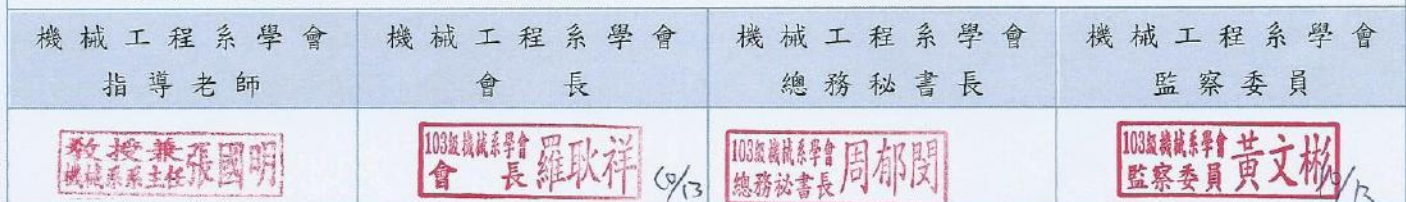 機械工程系學會 機械工程系學會 機械工程系學會 機械工程系學會
指導老師 會長 總務秘書長 監察委員
教授兼機械系系主任張國明 103級機械系學會會長羅耿祥 10/13 103級機械系學會總務祕書長周郁閔 103級機械系學會監察委員黃文彬 10/13